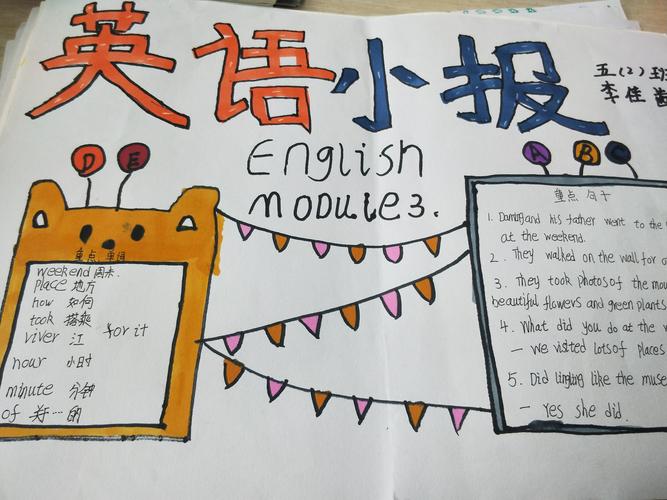 英语小报
五(2)班
李佳
English
Module3.
D E
A B C
重点 单词
weekend 周末.
place 地方
how 如何
took 搭乘
viver 江
for it
hour 小时
minute 分钟
of 关…的
重点 句子
1. Daming and his father went to the
at the weekend.
2. They walked on the wall for
3. They took photos of the mou
beautiful flowers and green plants
4. What did you do at the w
— we visited lots of places
5. Did lingling like the muse
— Yes she did.